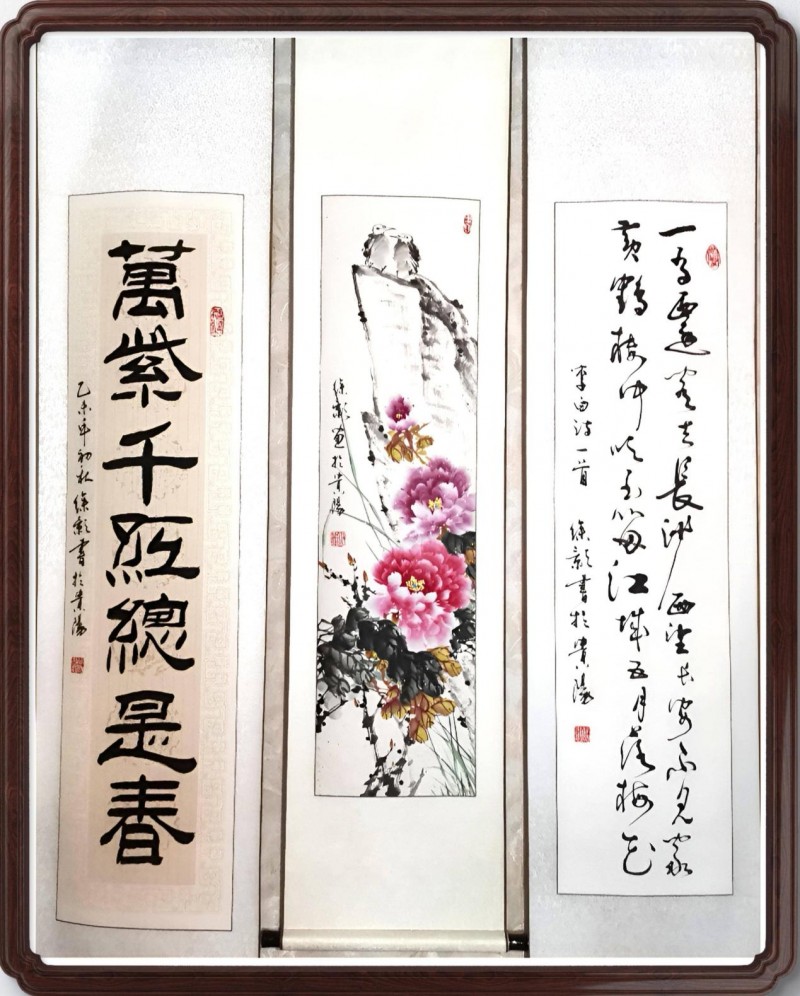 萬紫千红總是春
乙未年初秋徐書於貴陽
徐畫於貴陽
一為遷客去長沙西望長安不見家
黃鶴樓中吹玉笛江城五月落梅花
李白诗一首 徐書於貴陽